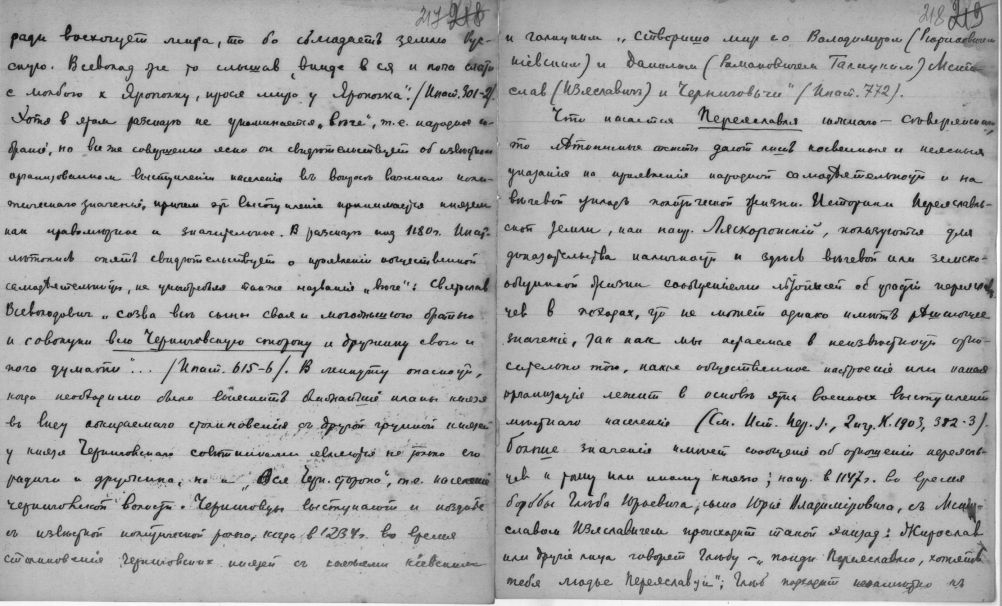 217 218
ради восхочуетъ мира, то бо съмладаетъ землю Рус-
скую. Всеволод же то слышав, вниде в ся и поча слати
с молбою к Ярополку, прося мира у Ярополка". (Ипат. 301-2).
Хотя в этом разсказе не упоминается "вече", т.е. народное со-
брание, но все же совершенно ясно он свидетельствует об известном
организованном выступлении населения въ вопросе важнаго поли-
тическаго значения, причем это выступление принимается князем
как правомочное и значительное. В разсказе под 1180 г. Ипат.
летопись опять свидетельствует о проявлении общественной
самодеятельности, не употребляя также названия "вече": Святослав
Всеволодович "созва всѣ сыны своя и молодьшюю братью
и совокупи всю Черниговскую сторону и дружину свою и
поча думати"... (Ипат. 615-6). В минуту опасности,
когда необходимо было выяснить ближайшие планы князя
въ виду ожидаемого столкновения съ другой группой князей
у князя Черниговскаго советниками являются не только его
родичи и дружина, но и "вся Черн. сторона", т.е. население
черниговской волости. Черниговцы выступают и позднее
с известной политической ролью, когда в 1234 г. во время
столкновения Черниговских князей съ князьями киевским
218 219
и галицким "створиша мир со Володимером (Рюриковичем
киевским) и Данилом (Романовичем Галицким) Мсти-
слав (Изяславич) и Черниговьчи" (Ипат. 772).
Что касается Переяславля южнаго —
то летописные тексты дают лишь косвенные и неясныя
указания на проявление народной самодеятельности и на
вечевой уклад политической жизни. Историки Переяславль-
ской земли, как напр. Ляскоронский, пользуются для
доказательства наличности и здесь вечевой или земско-
общинной жизни сообщениями летописей об участии переяслав-
цев в походах, что не может однако иметь решающее
значение, так как мы остаемся в неизвестности отно-
сительно того, какое общественное настроение или какая
организация лежит в основе этих военных выступлений
местнаго населения (См. Ист. Пер. з., 2 изд. К. 1903, 382-3).
Больше значения имеют сообщения об отношении переяслав-
цев к тому или иному князю; напр. в 1147 г. во время
борьбы Глеба Юрьевича, сына Юрия Владимировича, съ Мсти-
славом Изяславичем происходит такой эпизод: Жирослав
или другие лица говорят Глебу — "поиди Переяславлю, хотять
тебя людье Переяславци"; Глеб подходит незаметно къ